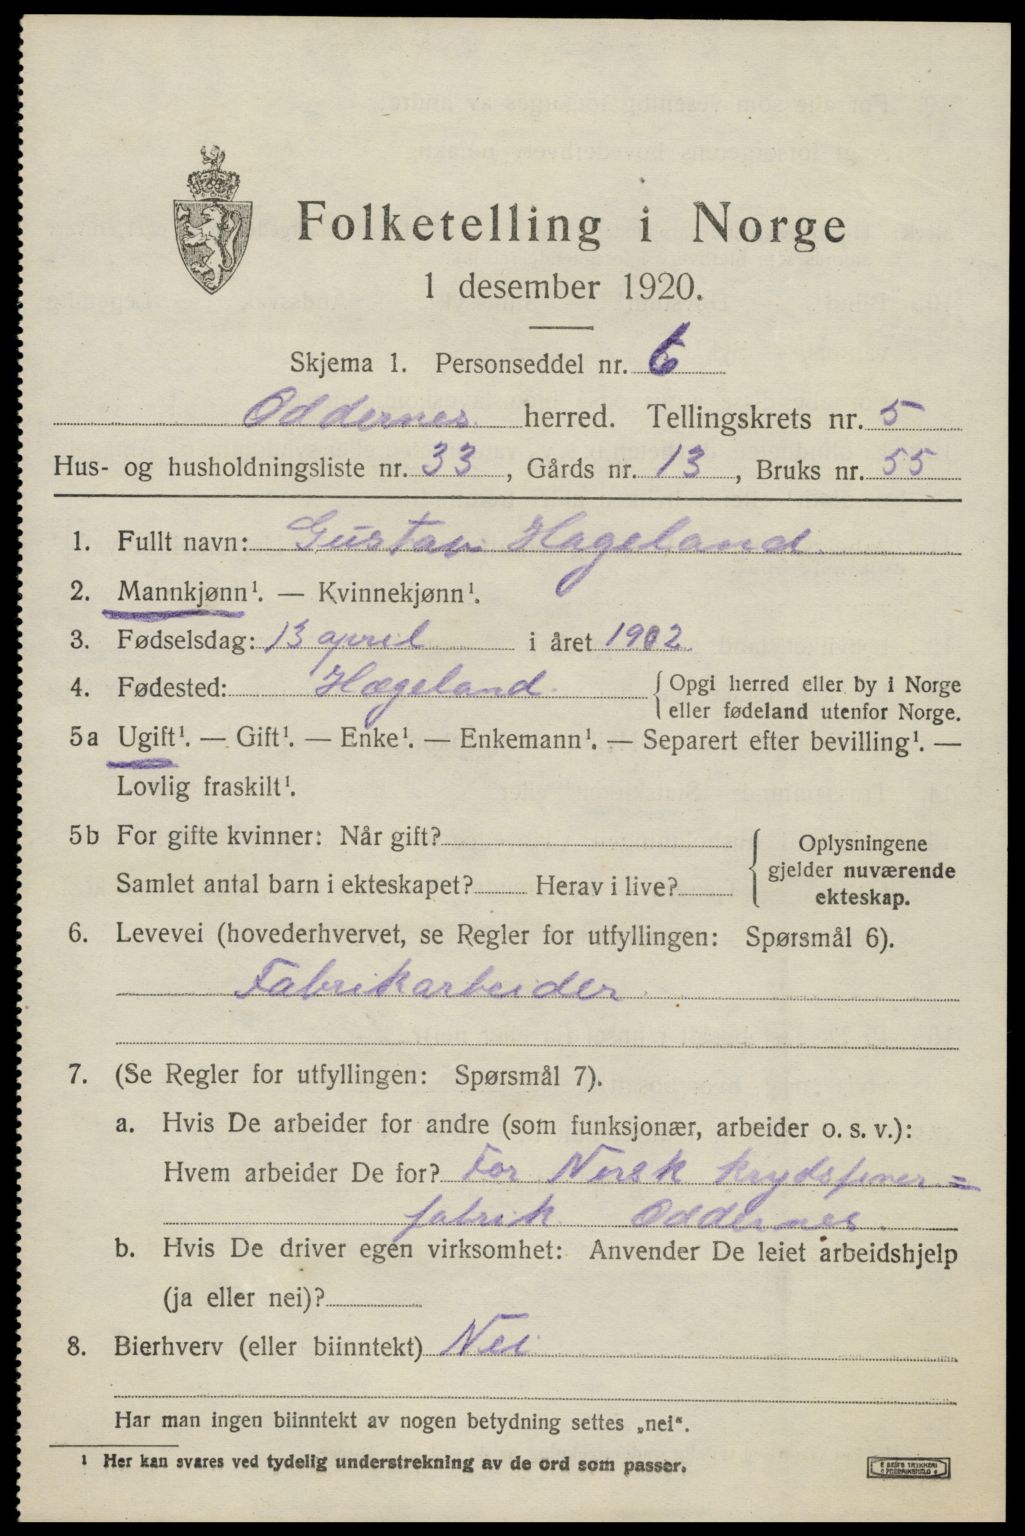 Folketelling i Norge
1 desember 1920.
Skjema 1. Personseddel nr. 6
Oddernes herred. Tellingskrets nr. 5
Hus- og husholdningsliste nr. 33, Gårds nr. 13, Bruks nr. 55
1. Fullt navn: Gustav Hageland.
2. Mannkjønn¹. — Kvinnekjønn¹.
3. Fødselsdag: 13 april i året 1902
4. Fødested: Hægeland. { Opgi herred eller by i Norge
eller fødeland utenfor Norge.
5a Ugift¹. — Gift¹. — Enke¹. — Enkemann¹. — Separert efter bevilling¹. —
Lovlig fraskilt¹.
5b For gifte kvinner: Når gift?
Samlet antal barn i ekteskapet? Herav i live?
Oplysningene
gjelder nuværende
ekteskap.
6. Levevei (hovederhvervet, se Regler for utfyllingen: Spørsmål 6).
Fabrikarbeider
7. (Se Regler for utfyllingen: Spørsmål 7).
a. Hvis De arbeider for andre (som funksjonær, arbeider o. s. v.):
Hvem arbeider De for? For Norsk krydsfiner=
fabrik Oddernes.
b. Hvis De driver egen virksomhet: Anvender De leiet arbeidshjelp
(ja eller nei)?
8. Bierhverv (eller biinntekt) Nei
Har man ingen biinntekt av nogen betydning settes „nei“.
¹ Her kan svares ved tydelig understrekning av de ord som passer.